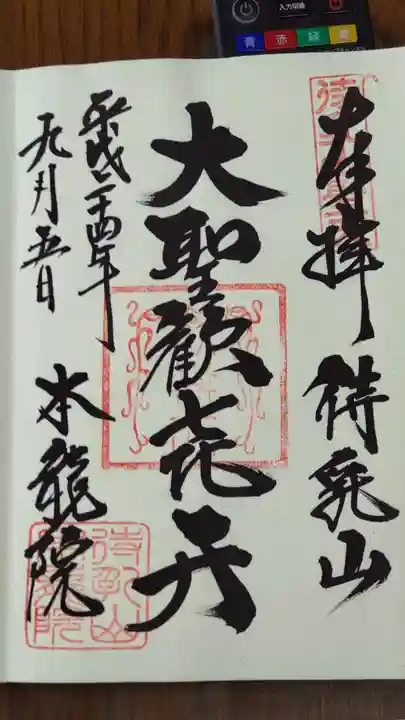 入力切換
青 赤 緑 黄
奉拝 待乳山
大聖歓㐂天
平成二十四年
九月五日
本龍院
待乳山
本龍院